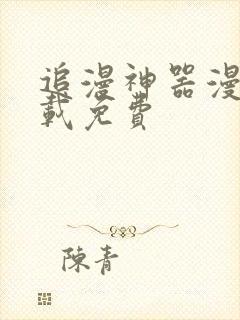 追漫神器漫
载免費
陳青